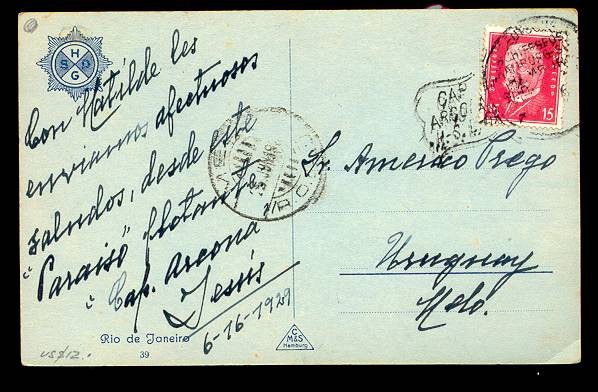 H
S D
G
Con Matilde les
enviamos afectuosos
saludos, desde este
"Paraiso" flotante
"Cap. Arcona
Jesús
6-16-1929
Rio de Janeiro
39
US$12.
C
M&S
Hamburg
15
15
CAP
ARCO
H.S.
Sr. Americo Prego
Uruguay
Melo.